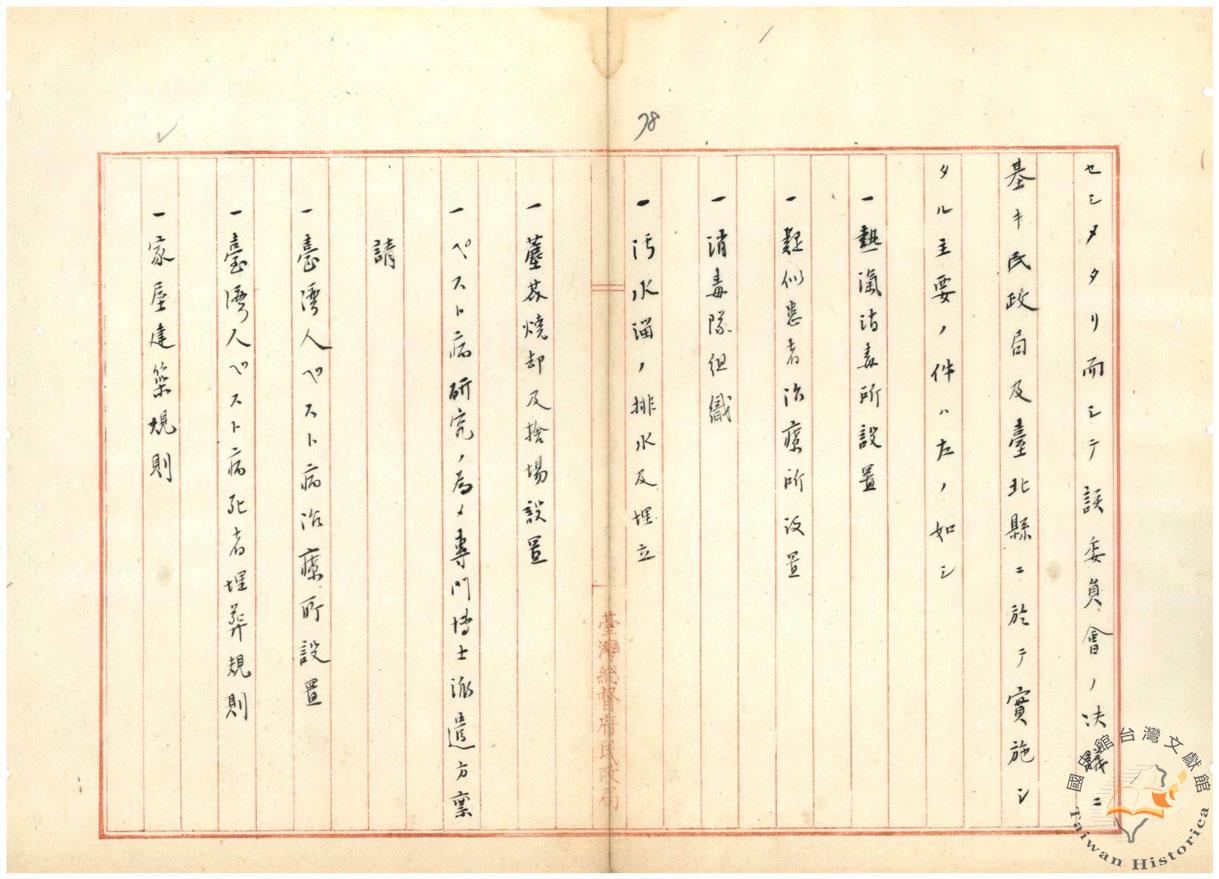 78
セシメタリ而シテ該委員會ノ決議ニ
基キ民政局及臺北縣ニ於テ實施シ
タル主要ノ件ハ左ノ如シ
一熱滊消毒所設置
一疑似患者治療所設置
一消毒隊組織
一汚水溜ノ排水及埋立
一塵芥燒却及捨場設置
一ペスト病研究ノ為メ專門博士派遣方禀
請
一臺灣人ペスト病治療所設置
一臺灣人ペスト病死者埋葬規則
一家屋建築規則
臺灣總督府民政局
國史館台灣文獻館
Taiwan Historica